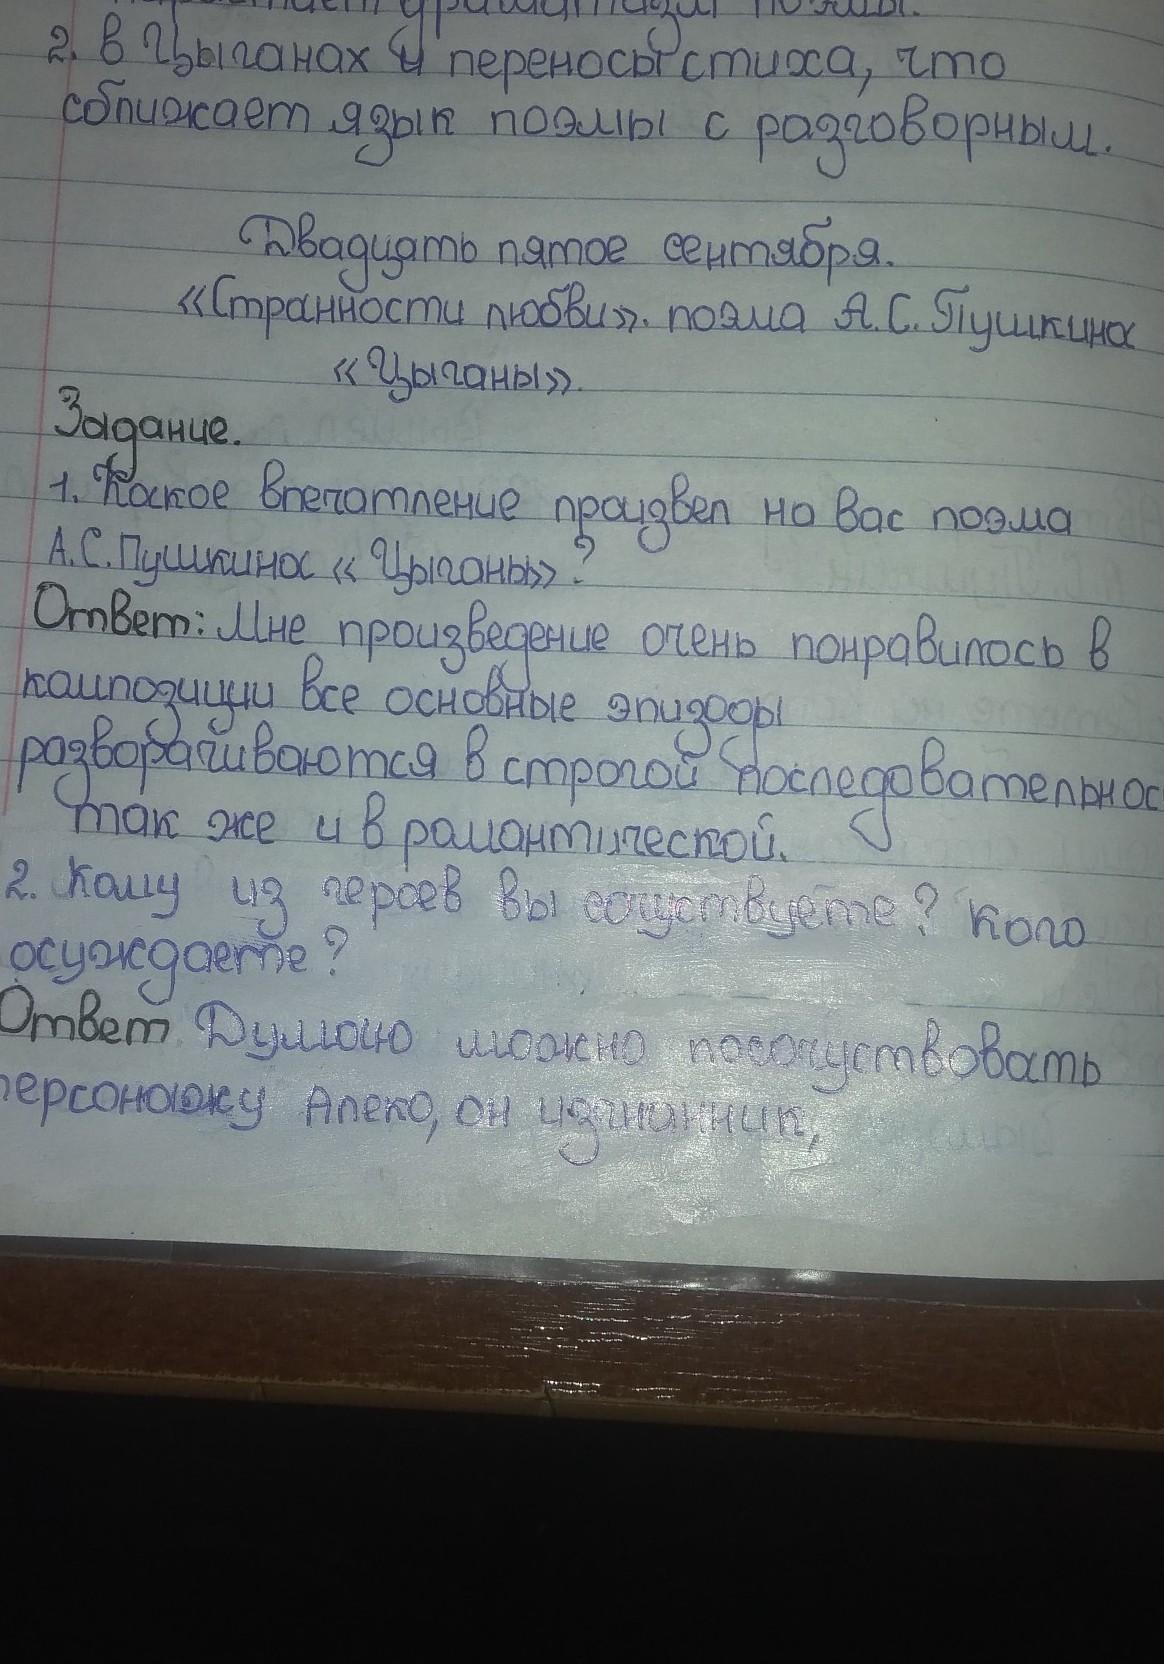 2. в Цыганах и переносы стиха, что
сближает язык поэмы с разговорным.
Двадцать пятое сентября.
«Странности любви». поэма А.С. Пушкина
«Цыганы».
Задание.
1. Какое впечатление произвел на Вас поэма
А.С. Пушкина «Цыганы»?
Ответ: Мне произведение очень понравилось в
композиции все основные эпизоды
разворачиваются в строгой последовательнос
так же и в романтической.
2. Кому из героев вы сочуствуете? Кого
осуждаете?
Ответ Думаю можно посочуствовать
персонажу Алеко, он изгнанник,